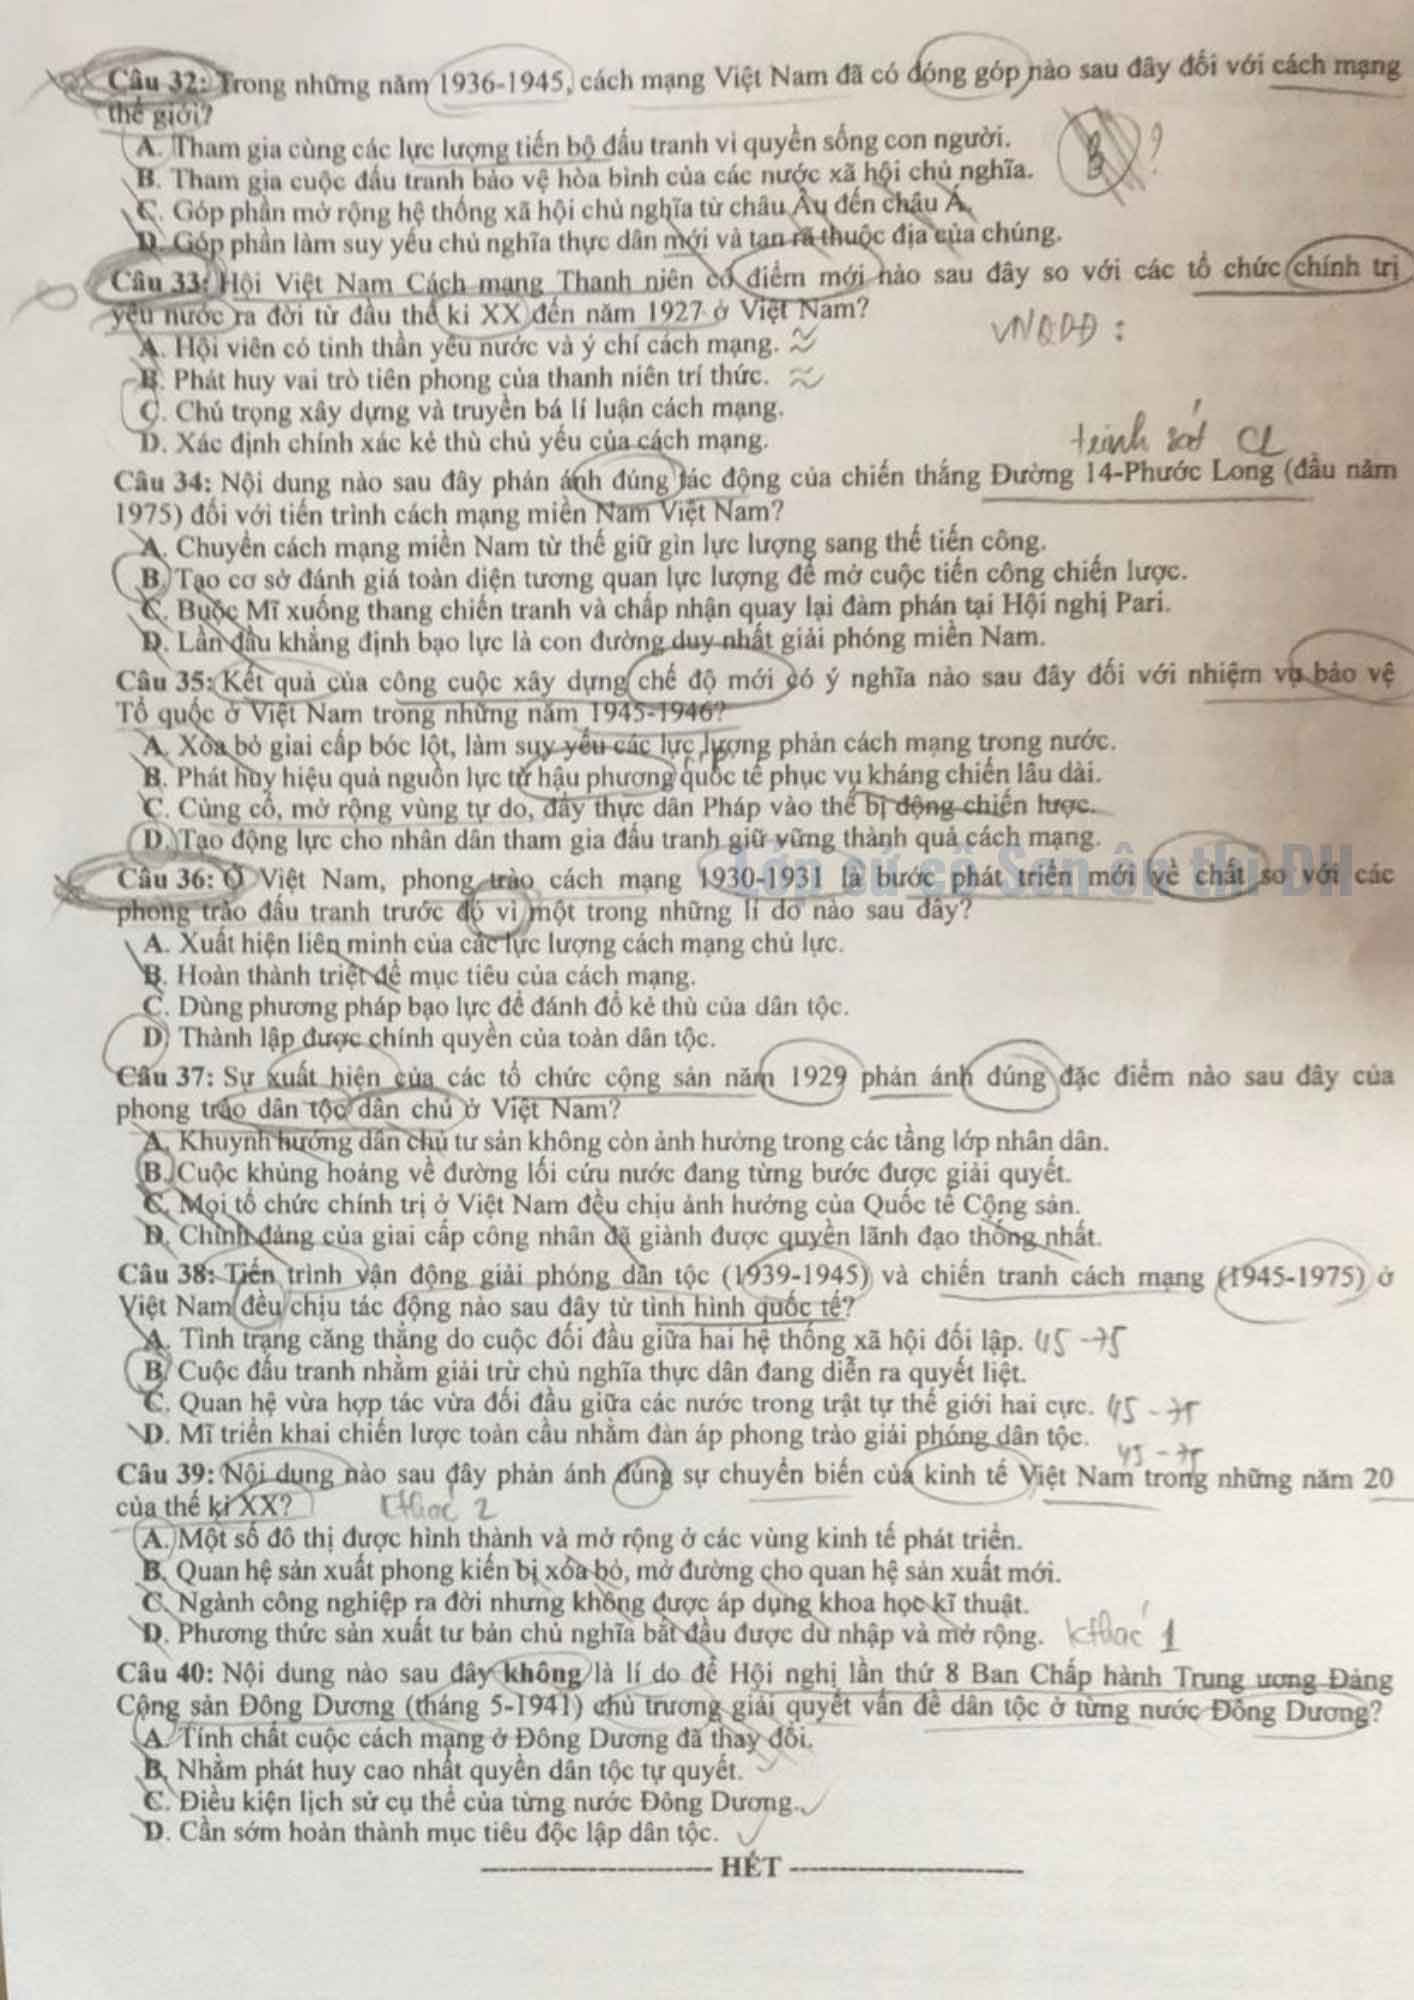 Câu 32: Trong những năm 1936-1945, cách mạng Việt Nam đã có đóng góp nào sau đây đối với cách mạng
thế giới?
A. Tham gia cùng các lực lượng tiến bộ đấu tranh vì quyền sống con người.
B. Tham gia cuộc đấu tranh bảo vệ hòa bình của các nước xã hội chủ nghĩa.
B ?
C. Góp phần mở rộng hệ thống xã hội chủ nghĩa từ châu Âu đến châu Á.
D. Góp phần làm suy yếu chủ nghĩa thực dân mới và tan rã thuộc địa của chúng.
Câu 33: Hội Việt Nam Cách mạng Thanh niên có điểm mới nào sau đây so với các tổ chức chính trị
yêu nước ra đời từ đầu thế kỉ XX đến năm 1927 ở Việt Nam?
VNQDĐ :
A. Hội viên có tinh thần yêu nước và ý chí cách mạng.
B. Phát huy vai trò tiên phong của thanh niên trí thức.
C. Chú trọng xây dựng và truyền bá lí luận cách mạng.
D. Xác định chính xác kẻ thù chủ yếu của cách mạng.
trinh sát CL
Câu 34: Nội dung nào sau đây phản ánh đúng tác động của chiến thắng Đường 14-Phước Long (đầu năm
1975) đối với tiến trình cách mạng miền Nam Việt Nam?
A. Chuyển cách mạng miền Nam từ thế giữ gìn lực lượng sang thế tiến công.
B. Tạo cơ sở đánh giá toàn diện tương quan lực lượng để mở cuộc tiến công chiến lược.
C. Buộc Mĩ xuống thang chiến tranh và chấp nhận quay lại đàm phán tại Hội nghị Pari.
D. Lần đầu khẳng định bạo lực là con đường duy nhất giải phóng miền Nam.
Câu 35: Kết quả của công cuộc xây dựng chế độ mới có ý nghĩa nào sau đây đối với nhiệm vụ bảo vệ
Tổ quốc ở Việt Nam trong những năm 1945-1946?
A. Xóa bỏ giai cấp bóc lột, làm suy yếu các lực lượng phản cách mạng trong nước.
B. Phát huy hiệu quả nguồn lực từ hậu phương quốc tế phục vụ kháng chiến lâu dài.
C. Củng cố, mở rộng vùng tự do, đẩy thực dân Pháp vào thế bị động chiến lược.
D. Tạo động lực cho nhân dân tham gia đấu tranh giữ vững thành quả cách mạng.
Lớp sử cô Sen ôn thi ĐH
Câu 36: Ở Việt Nam, phong trào cách mạng 1930-1931 là bước phát triển mới về chất so với các
phong trào đấu tranh trước đó vì một trong những lí do nào sau đây?
A. Xuất hiện liên minh của các lực lượng cách mạng chủ lực.
B. Hoàn thành triệt để mục tiêu của cách mạng.
C. Dùng phương pháp bạo lực để đánh đổ kẻ thù của dân tộc.
D. Thành lập được chính quyền của toàn dân tộc.
Câu 37: Sự xuất hiện của các tổ chức cộng sản năm 1929 phản ánh đúng đặc điểm nào sau đây của
phong trào dân tộc dân chủ ở Việt Nam?
A. Khuynh hướng dân chủ tư sản không còn ảnh hưởng trong các tầng lớp nhân dân.
B. Cuộc khủng hoảng về đường lối cứu nước đang từng bước được giải quyết.
C. Mọi tổ chức chính trị ở Việt Nam đều chịu ảnh hưởng của Quốc tế Cộng sản.
D. Chính đảng của giai cấp công nhân đã giành được quyền lãnh đạo thống nhất.
Câu 38: Tiến trình vận động giải phóng dân tộc (1939-1945) và chiến tranh cách mạng (1945-1975) ở
Việt Nam đều chịu tác động nào sau đây từ tình hình quốc tế?
A. Tình trạng căng thẳng do cuộc đối đầu giữa hai hệ thống xã hội đối lập. 45 -75
B. Cuộc đấu tranh nhằm giải trừ chủ nghĩa thực dân đang diễn ra quyết liệt.
C. Quan hệ vừa hợp tác vừa đối đầu giữa các nước trong trật tự thế giới hai cực. 45 - 75
D. Mĩ triển khai chiến lược toàn cầu nhằm đàn áp phong trào giải phóng dân tộc. 45 - 75
Câu 39: Nội dung nào sau đây phản ánh đúng sự chuyển biến của kinh tế Việt Nam trong những năm 20
của thế kỉ XX? kthác 2
A. Một số đô thị được hình thành và mở rộng ở các vùng kinh tế phát triển.
B. Quan hệ sản xuất phong kiến bị xóa bỏ, mở đường cho quan hệ sản xuất mới.
C. Ngành công nghiệp ra đời nhưng không được áp dụng khoa học kĩ thuật.
D. Phương thức sản xuất tư bản chủ nghĩa bắt đầu được du nhập và mở rộng. kthác 1
Câu 40: Nội dung nào sau đây không là lí do để Hội nghị lần thứ 8 Ban Chấp hành Trung ương Đảng
Cộng sản Đông Dương (tháng 5-1941) chủ trương giải quyết vấn đề dân tộc ở từng nước Đông Dương?
A. Tính chất cuộc cách mạng ở Đông Dương đã thay đổi.
B. Nhằm phát huy cao nhất quyền dân tộc tự quyết.
C. Điều kiện lịch sử cụ thể của từng nước Đông Dương.
D. Cần sớm hoàn thành mục tiêu độc lập dân tộc.
HẾT